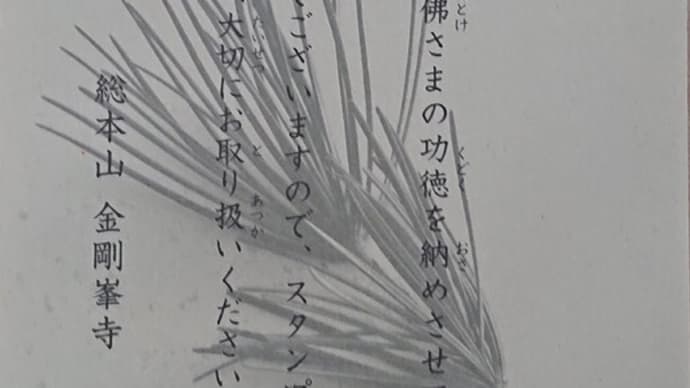 佛さまの功徳を納めさせ
ございますので、スタンプ
大切にお取り扱いください
総本山 金剛峯寺